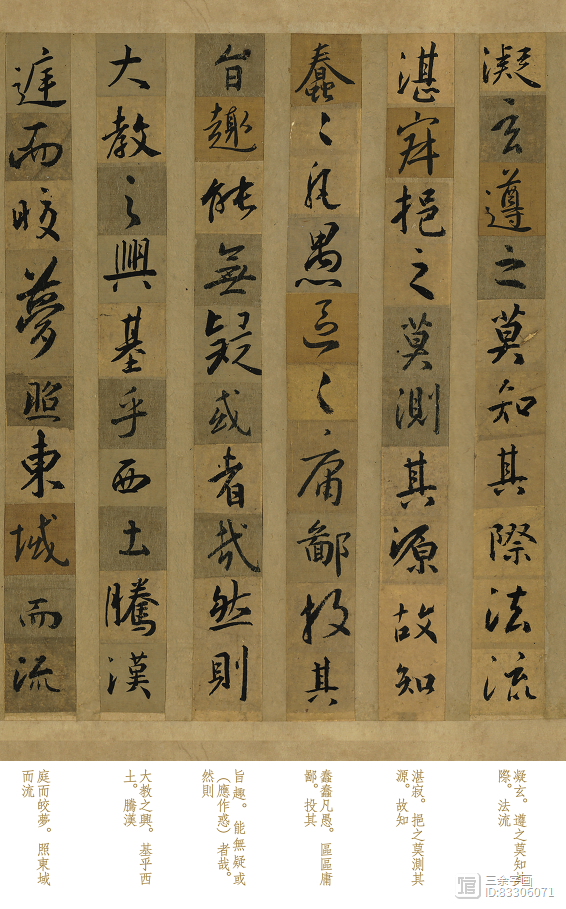 凝玄遵之莫知其際法流
湛寂挹之莫測其源故知
蠢〻凡愚區〻庸鄙投其
旨趣能無疑或者哉然則
大教之興基乎西土騰漢
庭而皎夢照東域而流
凝玄。遵之莫知其
際。法流
湛寂。挹之莫測其
源。故知
蠢蠢凡愚。區區庸
鄙。投其
旨趣。能無疑或
（應作惑）者哉。
然則
大教之興。基乎西
土。騰漢
庭而皎夢。照東域
而流
三余字画
ID:83306071